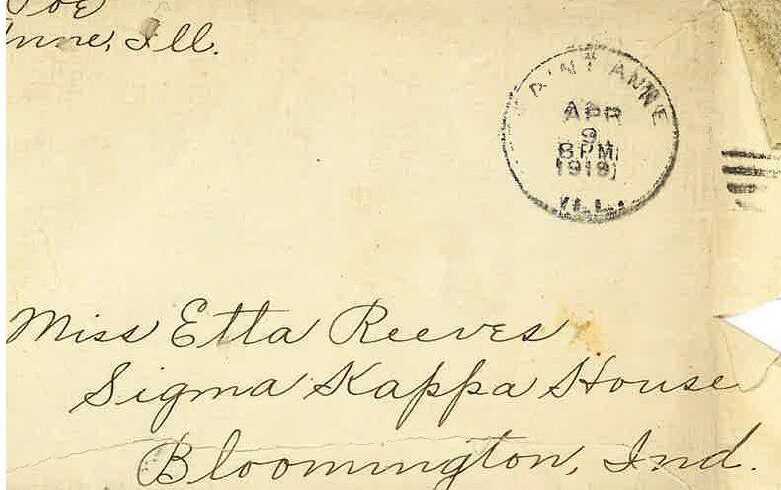 Anne, Ill.
SAINT ANNE
APR
9
8 PM
1919
ILL.
Miss Etta Reeves
Sigma Kappa House
Bloomington, Ind.